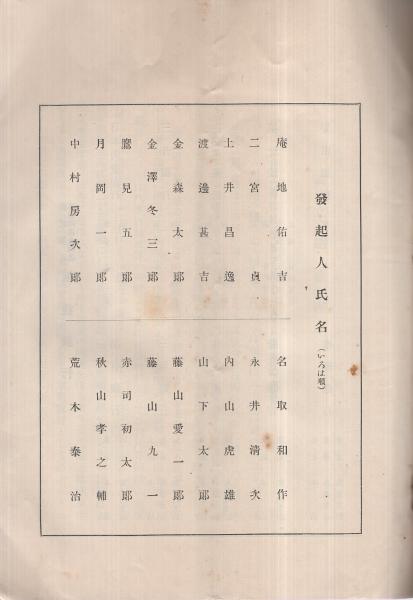 發起人氏名(いろは順)
庵地佑吉
二宮貞
土井昌逸
渡邊甚吉
金森太郎
金澤冬三郎
鷹見五郎
月岡一郎
中村房次郎
名取和作
永井淸次
內山虎雄
山下太郎
藤山愛一郎
藤山九一
赤司初太郎
秋山孝之輔
荒木泰治